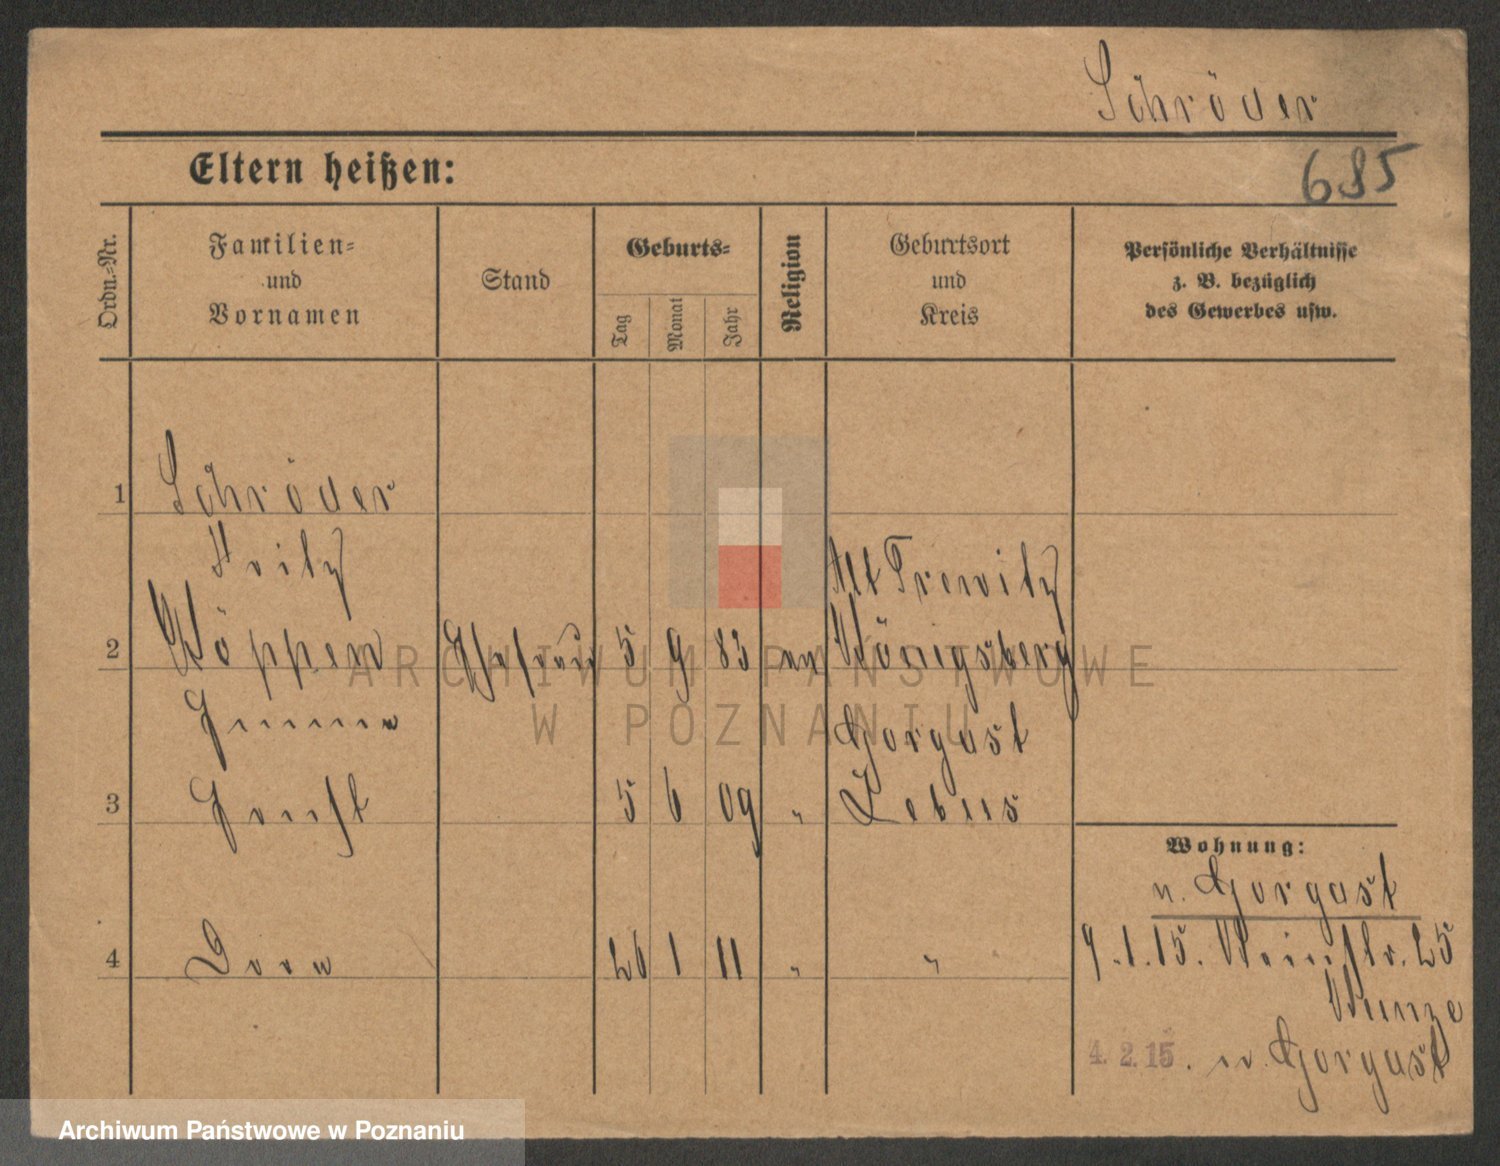 Schröder
Eltern heißen:
685
Ordn.-Nr.
Familien-
und
Vornamen
Stand
Geburts-
Tag
Monat
Jahr
Religion
Geburtsort
und
Kreis
Persönliche Verhältnisse
z. B. bezüglich
des Gewerbes usw.
1 Schröder
Fritz
Alt Trewitz
2 Köppen Ehefrau 5 9 83 ev Königsberg
Emma Gorgast
3 Ernst 5 6 09 " Lebus
Wohnung:
n. Gorgast
4 Dora 26 1 11 " "
9.1.15. Weinstr. 25
Kunze
4. 2. 15. n. Gorgast
ARCHIWUM PAŃSTWOWE
W POZNANIU
Archiwum Państwowe w Poznaniu